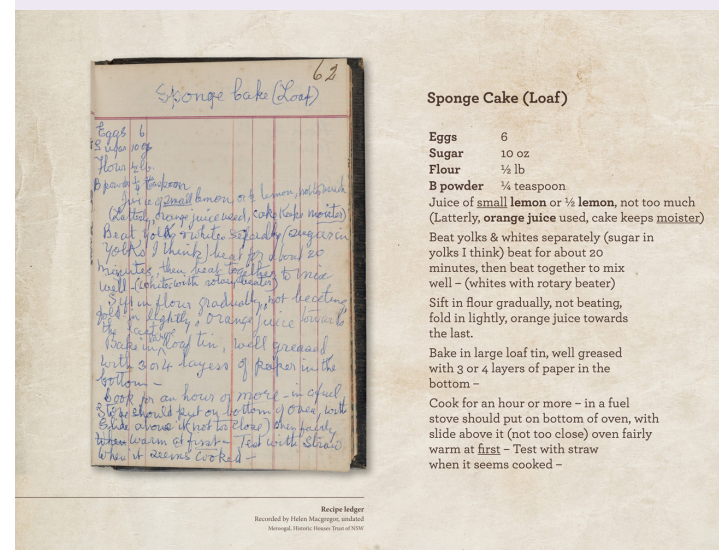 62
Sponge Cake (Loaf)
Eggs 6
Sugar 10 oz
Flour ½ lb
B powder ¼ teaspoon
Juice of small lemon or ½ lemon, not too much
(Latterly, orange juice used, cake keeps moister)
Beat yolks & whites separately (sugar in
yolks I think) beat for about 20
minutes, then beat together to mix
well – (whites with rotary beater)
Sift in flour gradually, not beating,
fold in lightly, orange juice towards
the last.
Bake in large loaf tin, well greased
with 3 or 4 layers of paper in the
bottom –
Cook for an hour or more – in a fuel
stove should put on bottom of oven, with
slide above it (not too close) oven fairly
warm at first – Test with straw,
when it seems cooked –
Sponge Cake (Loaf)
Eggs 6
Sugar 10 oz
Flour ½ lb
B powder ¼ teaspoon
Juice of small lemon or ½ lemon, not too much
(Latterly, orange juice used, cake keeps moister)
Beat yolks & whites separately (sugar in
yolks I think) beat for about 20
minutes, then beat together to mix
well – (whites with rotary beater)
Sift in flour gradually, not beating,
fold in lightly, orange juice towards
the last.
Bake in large loaf tin, well greased
with 3 or 4 layers of paper in the
bottom –
Cook for an hour or more – in a fuel
stove should put on bottom of oven, with
slide above it (not too close) oven fairly
warm at first – Test with straw
when it seems cooked –
Recipe ledger
Recorded by Helen Macgregor, undated
Meroogal, Historic Houses Trust of NSW